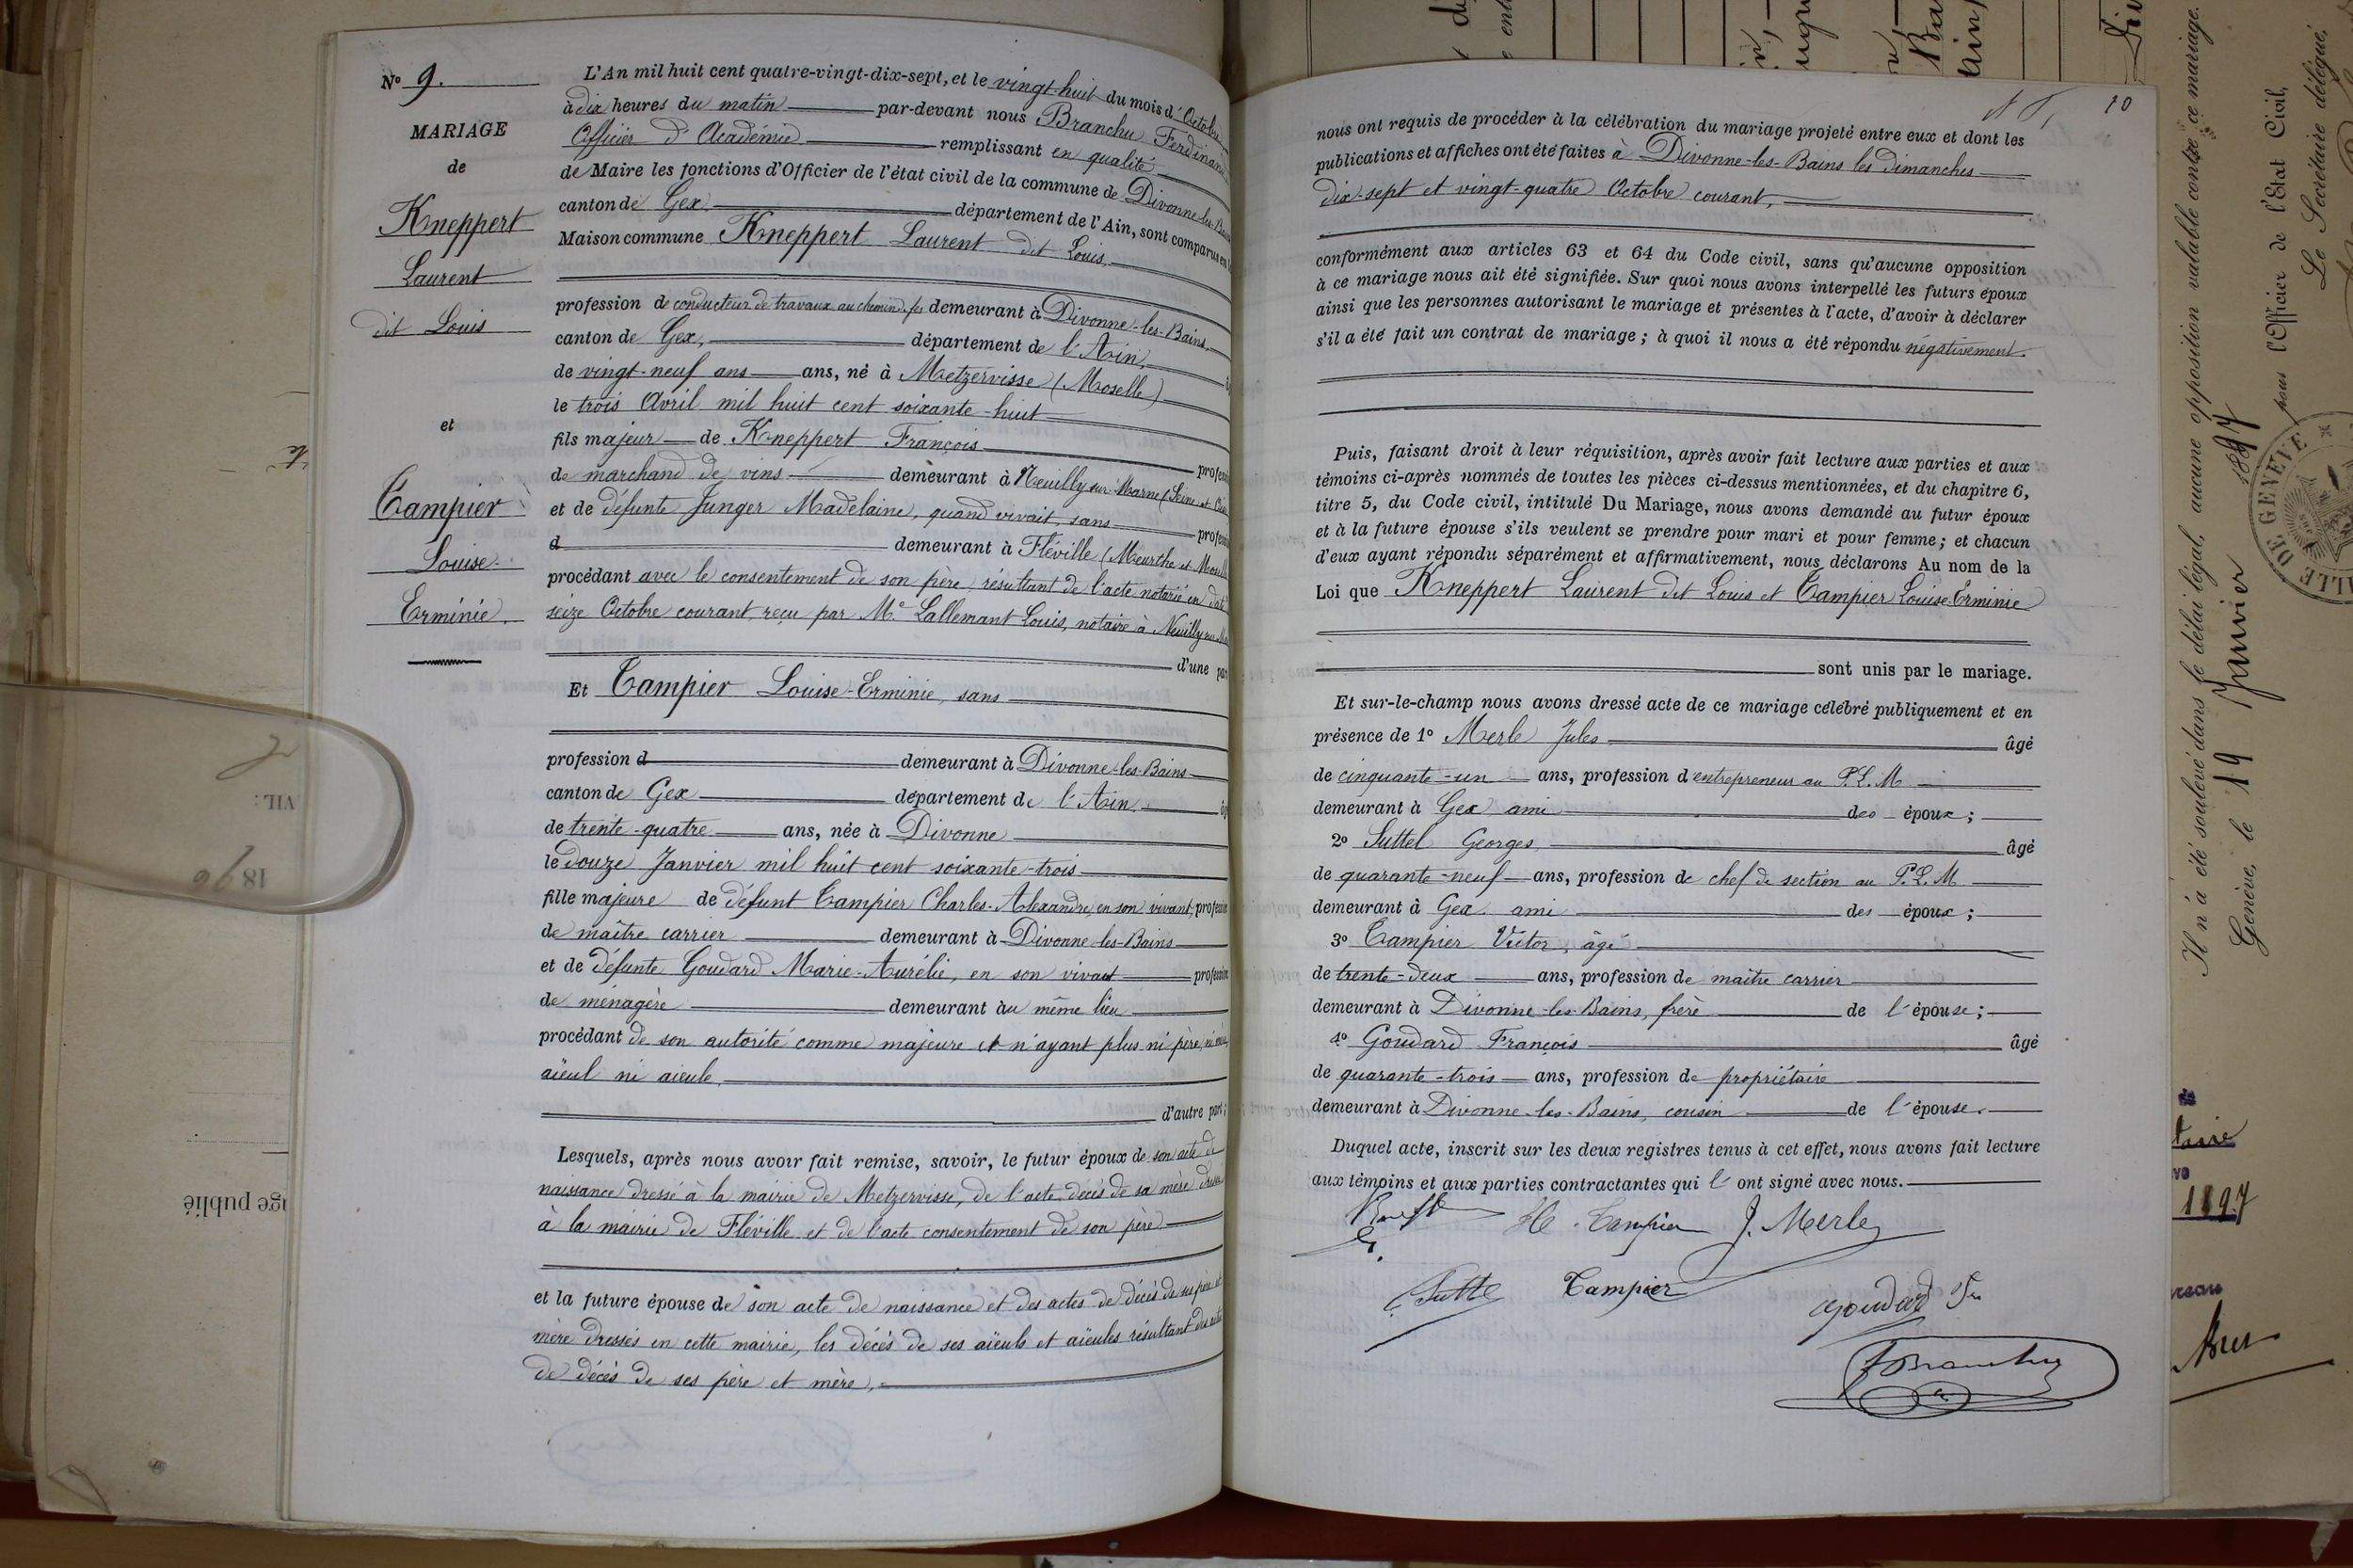 N° 9.
MARIAGE
de
Kneppert
Laurent
dit Louis
et
Campier
Louise
Erminie.
L'An mil huit cent quatre-vingt-dix-sept, et le vingt-huit du mois d'Octobre
à dix heures du matin par-devant nous Branchu Ferdinand
Officier d'Académie remplissant en qualité
de Maire les fonctions d'Officier de l'état civil de la commune de Divonne-les-Bains
canton de Gex département de l'Ain, sont comparus en la
Maison commune Kneppert Laurent dit Louis,
profession de conducteur de travaux au chemin de fer demeurant à Divonne-les-Bains
canton de Gex, département de l'Ain,
de vingt-neuf ans ans, né à Metzervisse (Moselle)
le trois Avril mil huit cent soixante-huit
fils majeur de Kneppert François profession
de marchand de vins demeurant à Neuilly sur Marne (Seine et Oise
et de défunte Junger Madelaine, quand vivait, sans profession
d demeurant à Fléville (Meurthe et Moselle
procédant avec le consentement de son père, résultant de l'acte notarié en date
seize Octobre courant, reçu par Me Lallemant Louis, notaire à Neuilly sur Marne
d'une part
Et Campier Louise-Erminie, sans
profession d demeurant à Divonne-les-Bains
canton de Gex département de l'Ain
de trente-quatre ans, née à Divonne
le douze Janvier mil huit cent soixante-trois
fille majeure de défunt Campier Charles-Alexandre, en son vivant, profession
de maître carrier demeurant à Divonne-les-Bains
et de défunte Goudard Marie-Aurélie, en son vivant profession
de ménagère demeurant au même lieu
procédant de son autorité comme majeure et n'ayant plus ni père, ni mère,
aïeul ni aïeule,
d'autre part;
Lesquels, après nous avoir fait remise, savoir, le futur époux de son acte de
naissance dressé à la mairie de Metzervisse, de l'acte décès de sa mère dressé
à la mairie de Fléville et de l'acte consentement de son père
et la future épouse de son acte de naissance et des actes de décès de ses père et
mère dressés en cette mairie, les décès de ses aïeuls et aïeules résultant des actes
de décès de ses père et mère,
10
nous ont requis de procéder à la célébration du mariage projeté entre eux et dont les
publications et affiches ont été faites à Divonne-les-Bains les dimanches
dix-sept et vingt-quatre Octobre courant,
conformément aux articles 63 et 64 du Code civil, sans qu'aucune opposition
à ce mariage nous ait été signifiée. Sur quoi nous avons interpellé les futurs époux
ainsi que les personnes autorisant le mariage et présentes à l'acte, d'avoir à déclarer
s'il a été fait un contrat de mariage; à quoi il nous a été répondu négativement.
Puis, faisant droit à leur réquisition, après avoir fait lecture aux parties et aux
témoins ci-après nommés de toutes les pièces ci-dessus mentionnées, et du chapitre 6,
titre 5, du Code civil, intitulé Du Mariage, nous avons demandé au futur époux
et à la future épouse s'ils veulent se prendre pour mari et pour femme; et chacun
d'eux ayant répondu séparément et affirmativement, nous déclarons Au nom de la
Loi que Kneppert Laurent dit Louis et Campier Louise-Erminie
sont unis par le mariage.
Et sur-le-champ nous avons dressé acte de ce mariage célébré publiquement et en
présence de 1° Merle Jules âgé
de cinquante-un ans, profession d'entrepreneur au P.L.M
demeurant à Gex ami des époux;
2° Suttel Georges âgé
de quarante-neuf ans, profession de chef de section au P.L.M
demeurant à Gex ami des époux;
3° Campier Victor, âgé
de trente-deux ans, profession de maître carrier
demeurant à Divonne-les-Bains, frère de l'épouse;
4° Goudard François âgé
de quarante-trois ans, profession de propriétaire
demeurant à Divonne-les-Bains, cousin de l'épouse.
Duquel acte, inscrit sur les deux registres tenus à cet effet, nous avons fait lecture
aux témoins et aux parties contractantes qui l'ont signé avec nous.
Campier J. Merle
Campier
Goudard
Branchu
Il n'a été soulevé dans le délai légal, aucune opposition valable contre ce mariage.
Genève, le 19 Janvier 1897
pour l'Officier de l'Etat Civil,
Le Secrétaire délégué,
VILLE DE GENÈVE
1897
1896
age publié